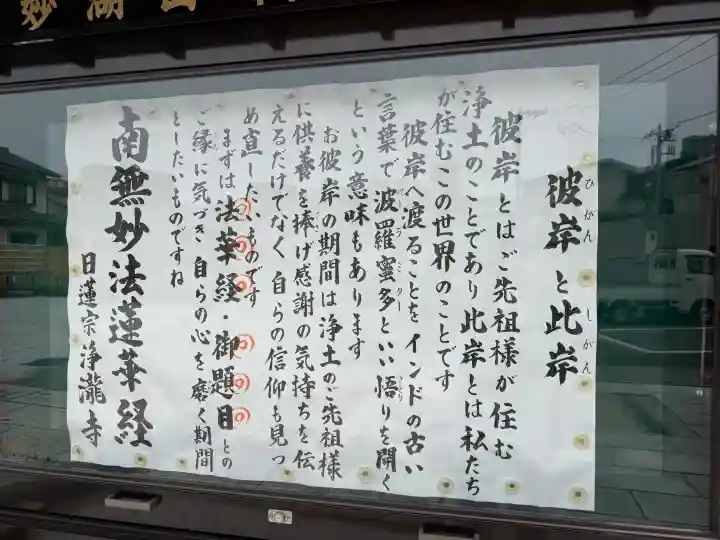 妙湖山
彼岸と此岸
ひがん
しがん
彼岸とはご先祖様が住む
浄土のことであり此岸とは私たち
が住むこの世界のことです
彼岸へ渡ることをインドの古い
言葉で波羅蜜多といい悟りを開く
パーラミター
さとり
という意味もあります
お彼岸の期間は浄土のご先祖様
に供養を捧げ感謝の気持ちを伝
えるだけでなく自らの信仰も見つ
め直したいものです
まずは法華経・御題目との
ご縁に気づき自らの心を磨く期間
としたいものですね
南無妙法蓮華経
日蓮宗浄瀧寺